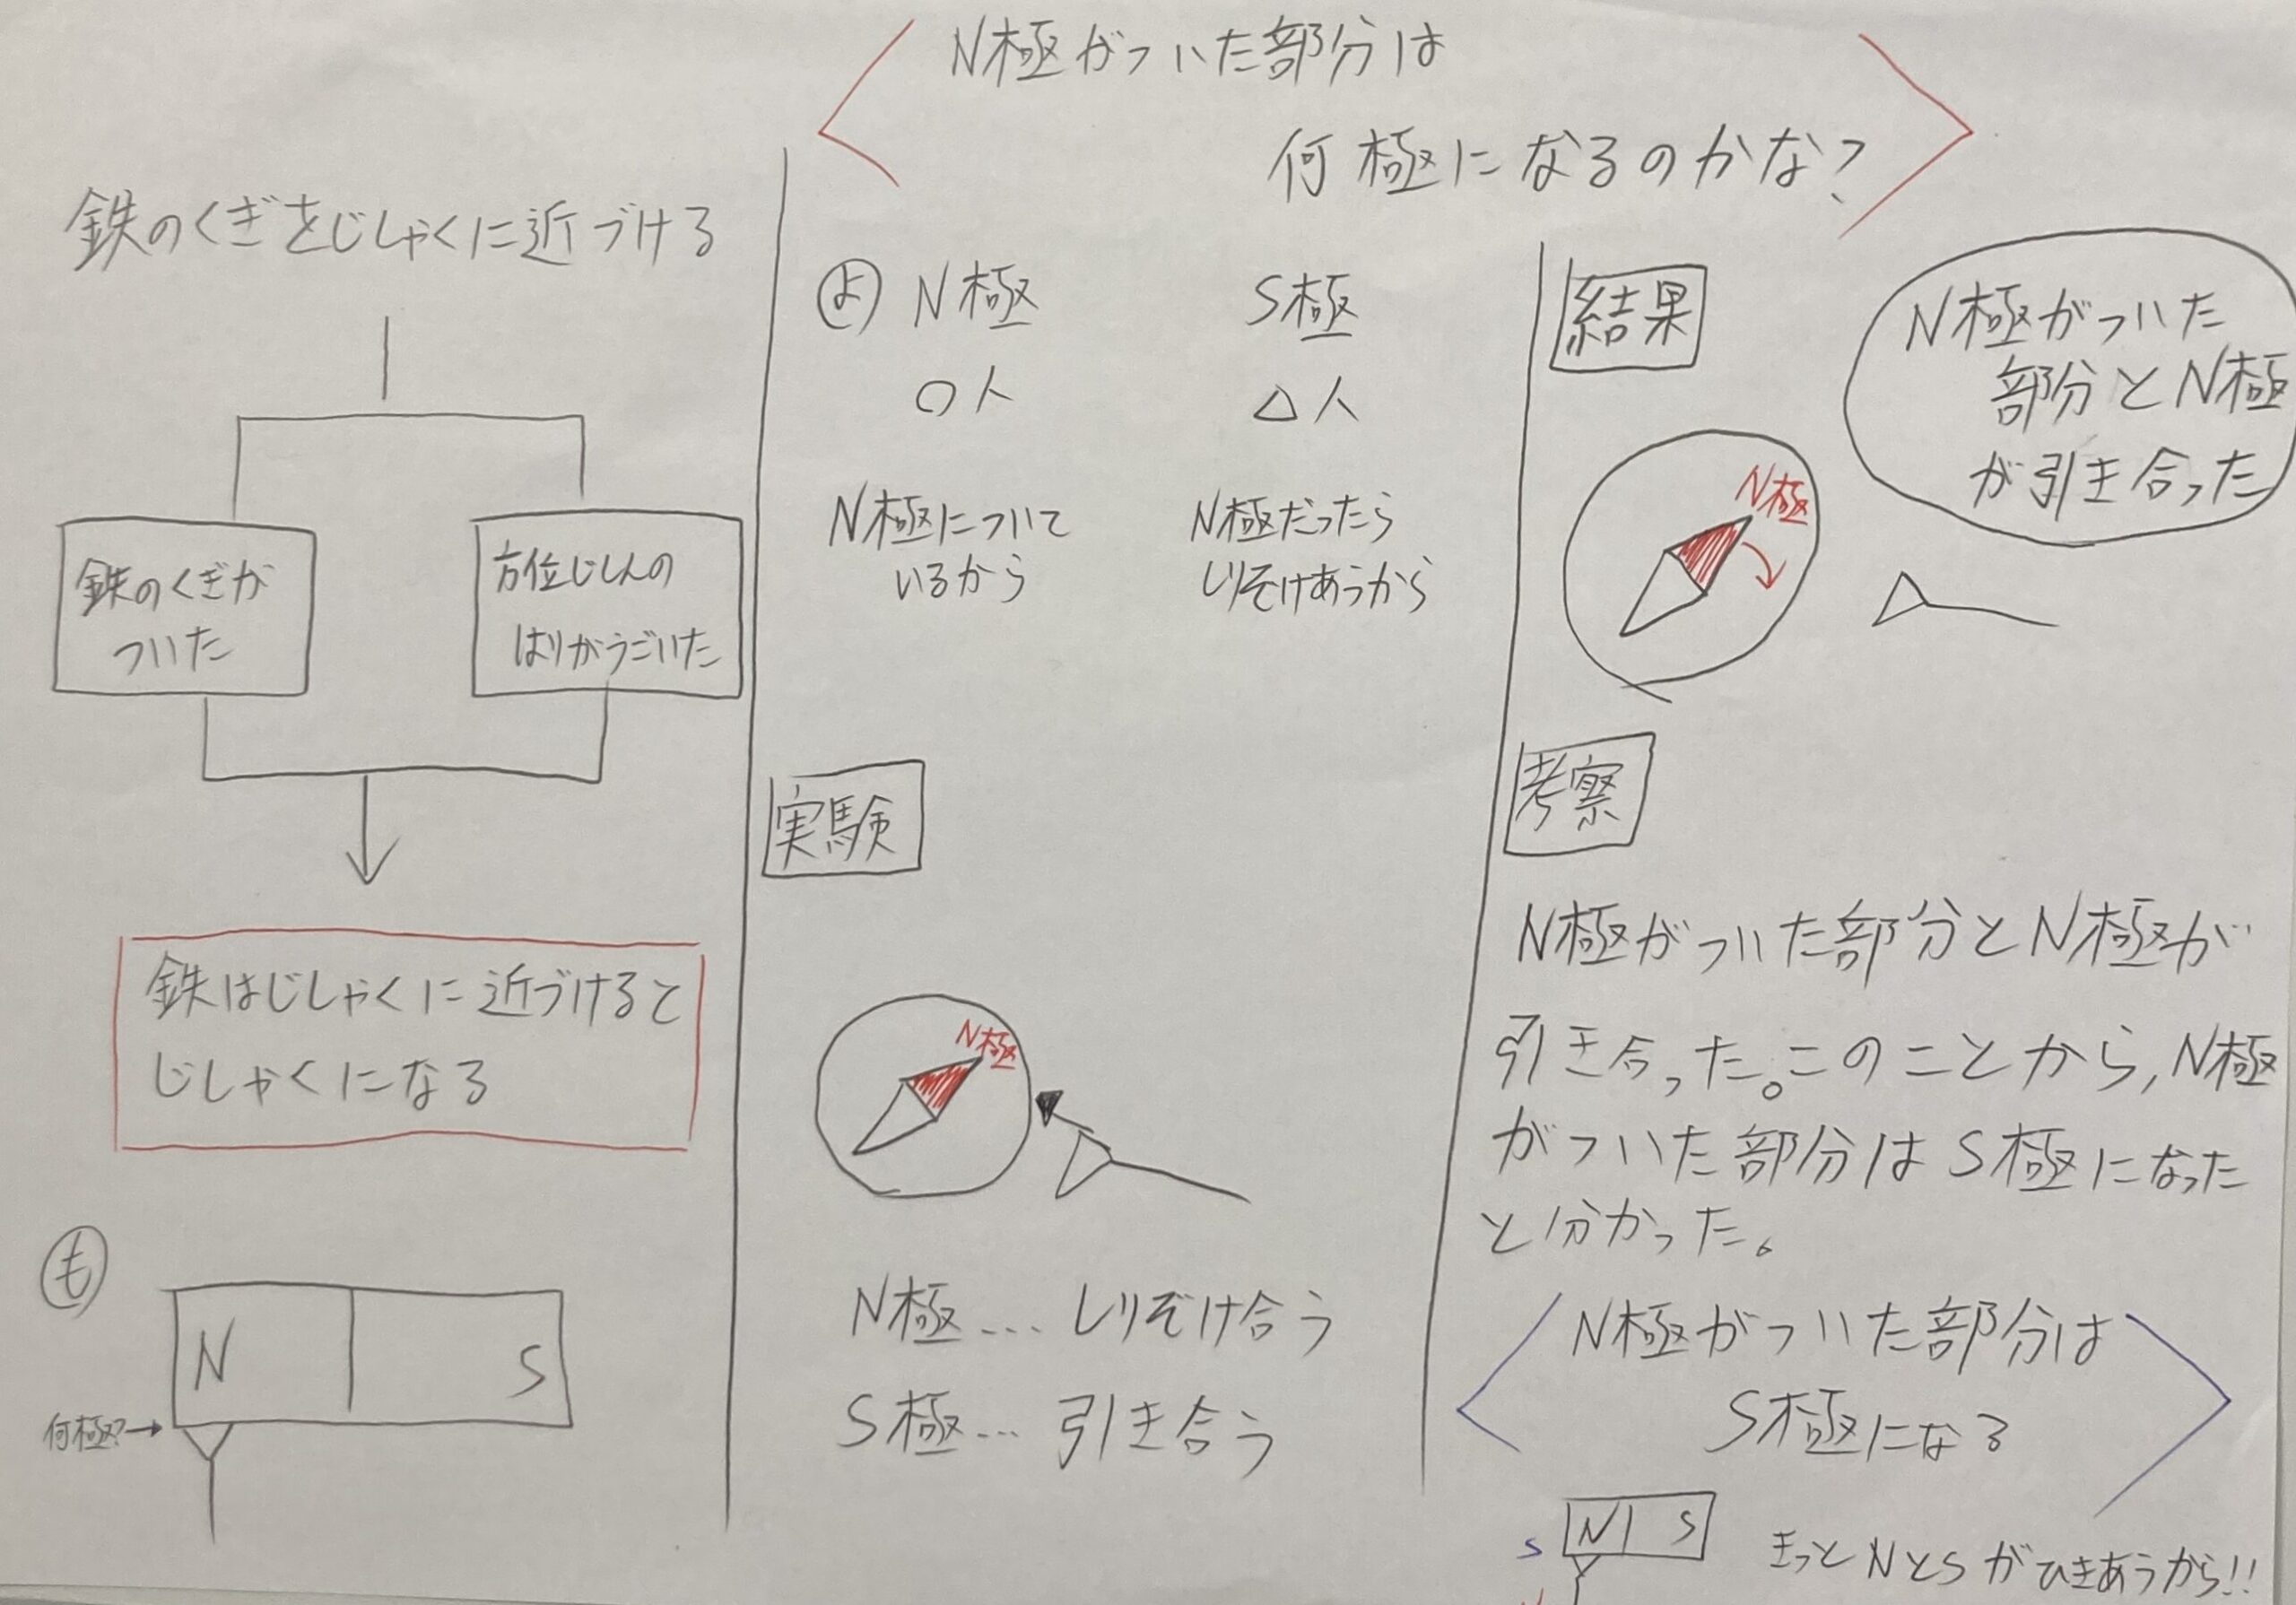 N極がついた部分は
何極になるのかな?
鉄のくぎをじしゃくに近づける
鉄のくぎが
ついた
方位じしんの
はりがうごいた
鉄はじしゃくに近づけると
じしゃくになる
も
N S
何極?→
よ N極 S極
○人 △人
N極について
いるから
N極だったら
しりぞけあうから
実験
N極
N極…しりぞけ合う
S極…引き合う
結果
N極がついた
部分とN極
が引き合った
N極
考察
N極がついた部分とN極が
引き合った。このことから,N極
がついた部分はS極になった
と分かった。
N極がついた部分は
S極になる
N S
S
きっとNとSがひきあうから!!